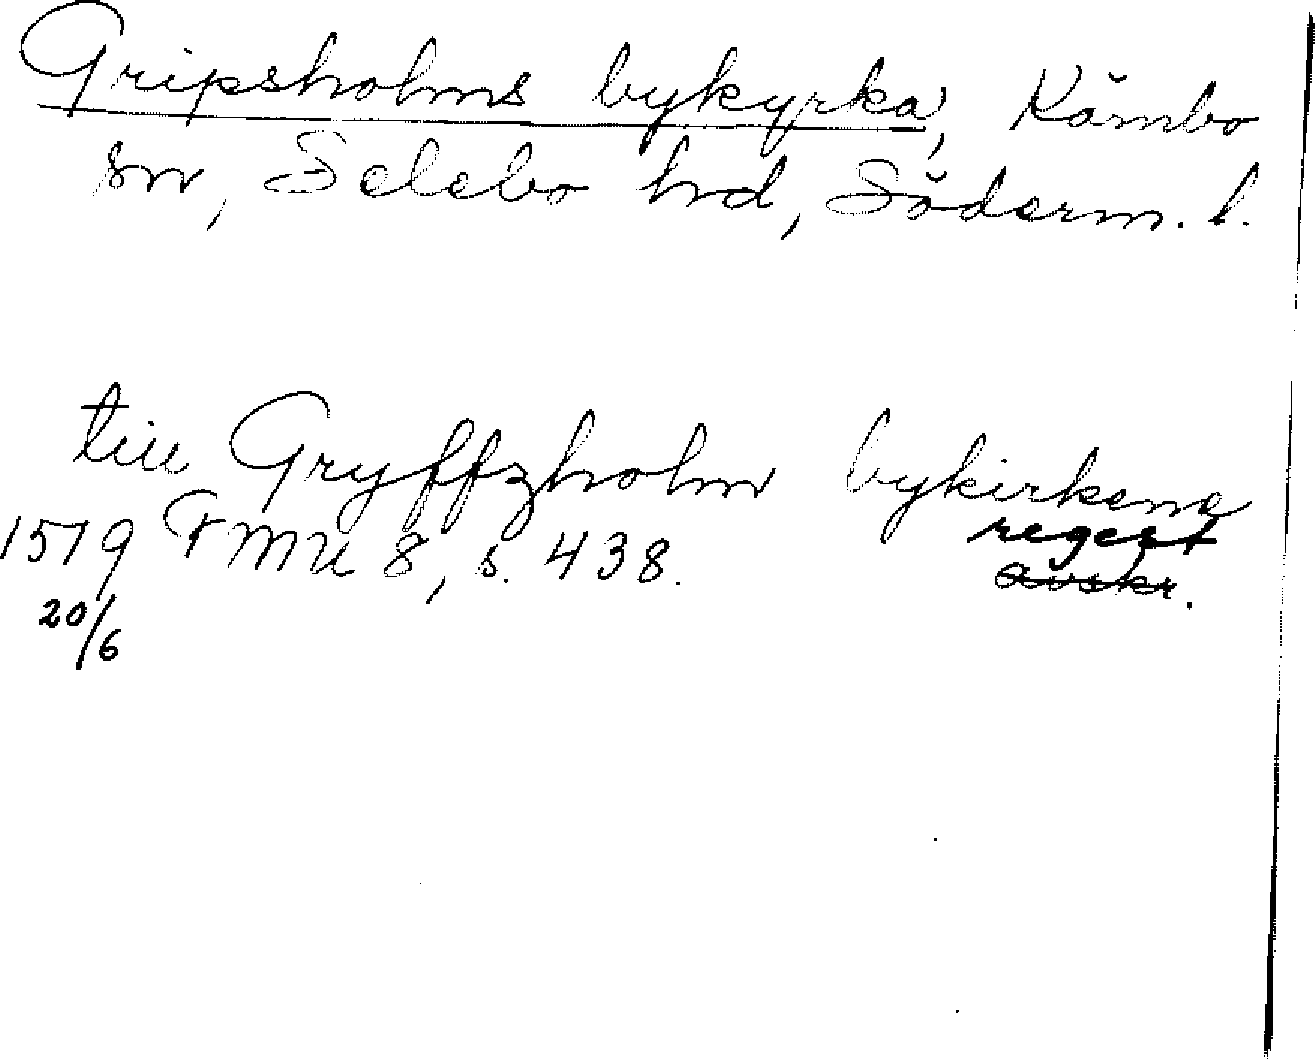 Gripsholms bykyrka, Kärnbo
sn, Selebo hd, Söderm. l.
till Gryffzholm bykirkene
1519 FMU 8, s. 438. regest
20/6 avskr.